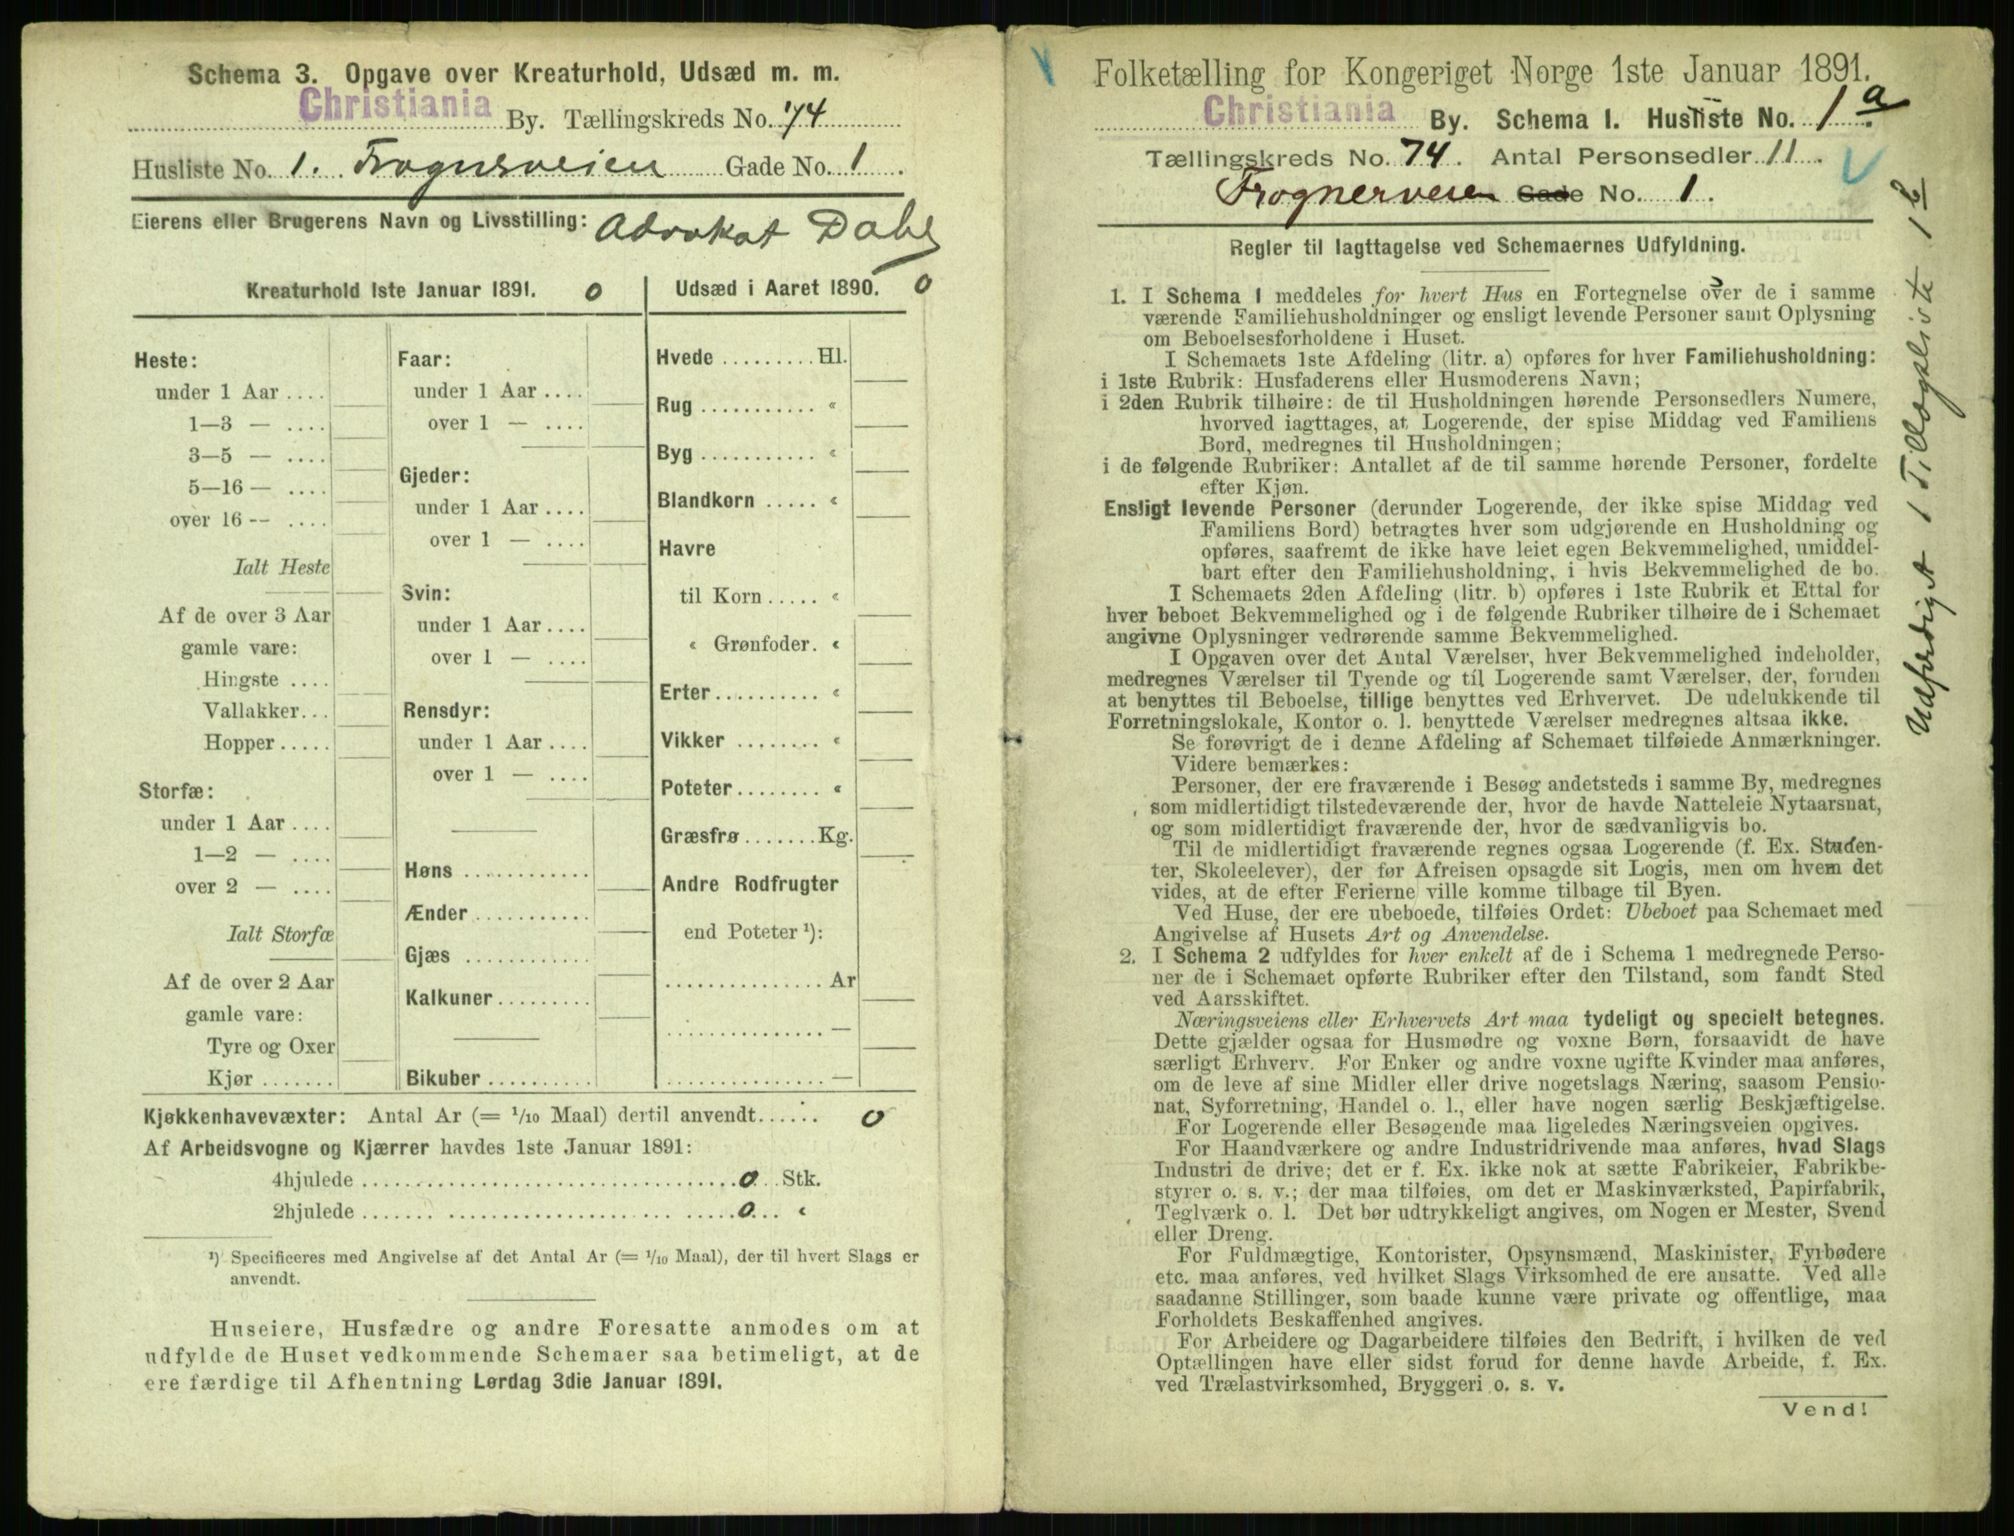 Schema 3. Opgave over Kreaturhold, Udsæd m. m.
Christiania By. Tællingskreds No. 74
Husliste No. 1. Frognerveien Gade No. 1.
Eierens eller Brugerens Navn og Livsstilling: Advokat Dahl
Kreaturhold 1ste Januar 1891. 0
Heste:
under 1 Aar ....
1—3 — ....
3—5 — ....
5—16 — ....
over 16 -- ....
Ialt Heste
Af de over 3 Aar
gamle vare:
Hingste ....
Vallakker...
Hopper .....
Storfæ:
under 1 Aar ....
1—2 — ....
over 2 — ....
Ialt Storfæ
Af de over 2 Aar
gamle vare:
Tyre og Oxer
Kjør .......
Faar:
under 1 Aar ....
over 1 — ....
Gjeder:
under 1 Aar ....
over 1 — ....
Svin:
under 1 Aar ....
over 1 — ....
Rensdyr:
under 1 Aar ....
over 1 — ....
Høns ............
Ænder ...........
Gjæs ............
Kalkuner .........
Bikuber ..........
Udsæd i Aaret 1890. 0
Hvede ......... Hl.
Rug ........... «
Byg ........... «
Blandkorn ..... «
Havre
til Korn ..... «
« Grønfoder. «
Erter ......... «
Vikker ........ «
Poteter ........ «
Græsfrø ....... Kg.
Andre Rodfrugter
end Poteter ¹):
............... Ar
............... —
............... —
Kjøkkenhavevæxter: Antal Ar (= 1/10 Maal) dertil anvendt...... 0
Af Arbeidsvogne og Kjærrer havdes 1ste Januar 1891:
4hjulede ................................ 0 Stk.
2hjulede ................................ 0 «
¹) Specificeres med Angivelse af det Antal Ar (= 1/10 Maal), der til hvert Slags er
anvendt.
Huseiere, Husfædre og andre Foresatte anmodes om at
udfylde de Huset vedkommende Schemaer saa betimeligt, at de
ere færdige til Afhentning Lørdag 3die Januar 1891.
Folketælling for Kongeriget Norge 1ste Januar 1891.
Christiania By. Schema 1. Husliste No. 1 a
Tællingskreds No. 74. Antal Personsedler 11.
Frognerveien Gade No. 1.
Regler til Iagttagelse ved Schemaernes Udfyldning.
1. I Schema 1 meddeles for hvert Hus en Fortegnelse over de i samme
værende Familiehusholdninger og ensligt levende Personer samt Oplysning
om Beboelsesforholdene i Huset.
I Schemaets 1ste Afdeling (litr. a) opføres for hver Familiehusholdning:
i 1ste Rubrik: Husfaderens eller Husmoderens Navn;
i 2den Rubrik tilhøire: de til Husholdningen hørende Personsedlers Numere,
hvorved iagttages, at Logerende, der spise Middag ved Familiens
Bord, medregnes til Husholdningen;
i de følgende Rubriker: Antallet af de til samme hørende Personer, fordelte
efter Kjøn.
Ensligt levende Personer (derunder Logerende, der ikke spise Middag ved
Familiens Bord) betragtes hver som udgjørende en Husholdning og
opføres, saafremt de ikke have leiet egen Bekvemmelighed, umiddel-
bart efter den Familiehusholdning, i hvis Bekvemmelighed de bo.
I Schemaets 2den Afdeling (litr. b) opføres i 1ste Rubrik et Ettal for
hver beboet Bekvemmelighed og i de følgende Rubriker tilhøire de i Schemaet
angivne Oplysninger vedrørende samme Bekvemmelighed.
I Opgaven over det Antal Værelser, hver Bekvemmelighed indeholder,
medregnes Værelser til Tyende og til Logerende samt Værelser, der, foruden
at benyttes til Beboelse, tillige benyttes ved Erhvervet. De udelukkende til
Forretningslokale, Kontor o. l. benyttede Værelser medregnes altsaa ikke.
Se forøvrigt de i denne Afdeling af Schemaet tilføiede Anmærkninger.
Videre bemærkes:
Personer, der ere fraværende i Besøg andetsteds i samme By, medregnes
som midlertidigt tilstedeværende der, hvor de havde Natteleie Nytaarsnat,
og som midlertidigt fraværende der, hvor de sædvanligvis bo.
Til de midlertidigt fraværende regnes ogsaa Logerende (f. Ex. Studen-
ter, Skoleelever), der før Afreisen opsagde sit Logis, men om hvem det
vides, at de efter Ferierne ville komme tilbage til Byen.
Ved Huse, der ere ubeboede, tilføies Ordet: Ubeboet paa Schemaet med
Angivelse af Husets Art og Anvendelse.
2. I Schema 2 udfyldes for hver enkelt af de i Schema 1 medregnede Perso-
ner de i Schemaet opførte Rubriker efter den Tilstand, som fandt Sted
ved Aarsskiftet.
Næringsveiens eller Erhvervets Art maa tydeligt og specielt betegnes.
Dette gjælder ogsaa for Husmødre og voxne Børn, forsaavidt de have
særligt Erhverv. For Enker og andre voxne ugifte Kvinder maa anføres,
om de leve af sine Midler eller drive nogetslags Næring, saasom Pensio-
nat, Syforretning, Handel o. l., eller have nogen særlig Beskjæftigelse.
For Logerende eller Besøgende maa ligeledes Næringsveien opgives.
For Haandværkere og andre Industridrivende maa anføres, hvad Slags
Industri de drive; det er f. Ex. ikke nok at sætte Fabrikeier, Fabrikbe-
styrer o. s. v.; der maa tilføies, om det er Maskinværksted, Papirfabrik,
Teglværk o. l. Det bør udtrykkeligt angives, om Nogen er Mester, Svend
eller Dreng.
For Fuldmægtige, Kontorister, Opsynsmænd, Maskinister, Fyrbødere
etc. maa anføres, ved hvilket Slags Virksomhed de ere ansatte. Ved alle
saadanne Stillinger, som baade kunne være private og offentlige, maa
Forholdets Beskaffenhed angives.
For Arbeidere og Dagarbeidere tilføies den Bedrift, i hvilken de ved
Optællingen have eller sidst forud for denne havde Arbeide, f. Ex.
ved Trælastvirksomhed, Bryggeri o. s. v.
Vend!
Udfærdiget 1 Tillægsliste 1 b